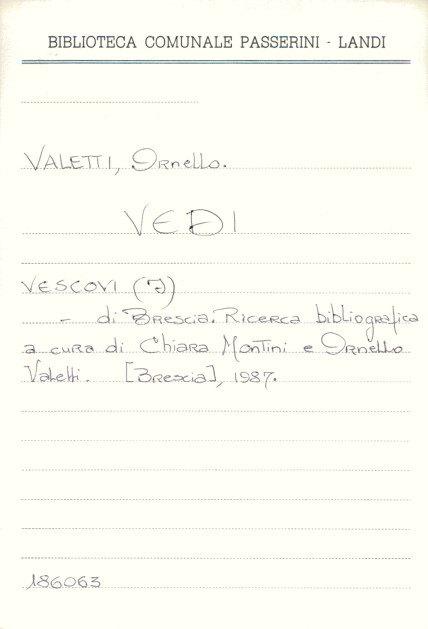 BIBLIOTECA COMUNALE PASSERINI - LANDI
VALETTI, Ornello.
VEDI
VESCOVI (I)
- di Brescia. Ricerca bibliografica
a cura di Chiara Montini e Ornello
Valetti. [Brescia], 1987.
186063